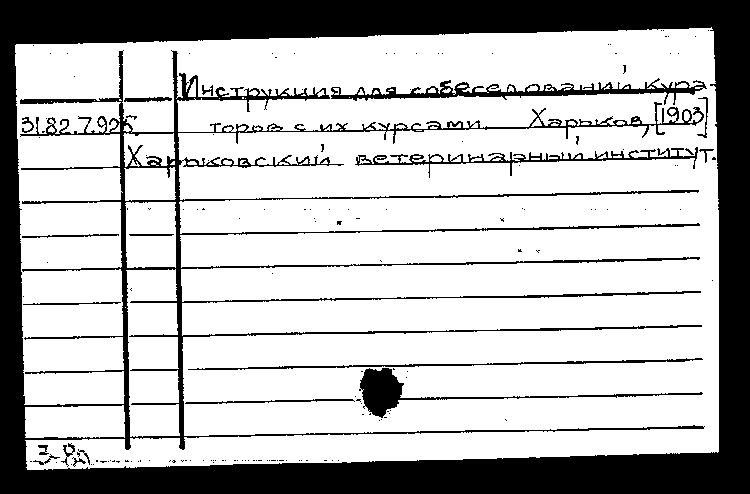 Инструкция для собеседований кура-
31.82.7.925. торов с их курсами. Харьков, [1903]
Харьковский ветеринарный институт.
3-89